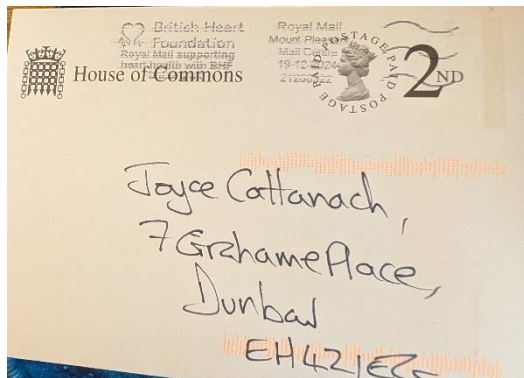 British Heart
Foundation
Royal Mail supporting
heart health with BHF
Royal Mail
Mount Pleasant
Mail Centre
19-12-2024
21200522
POSTAGE PAID POSTAGE PAID
2ND
House of Commons
Joyce Cattanach,
7 Grahame Place,
Dunbar